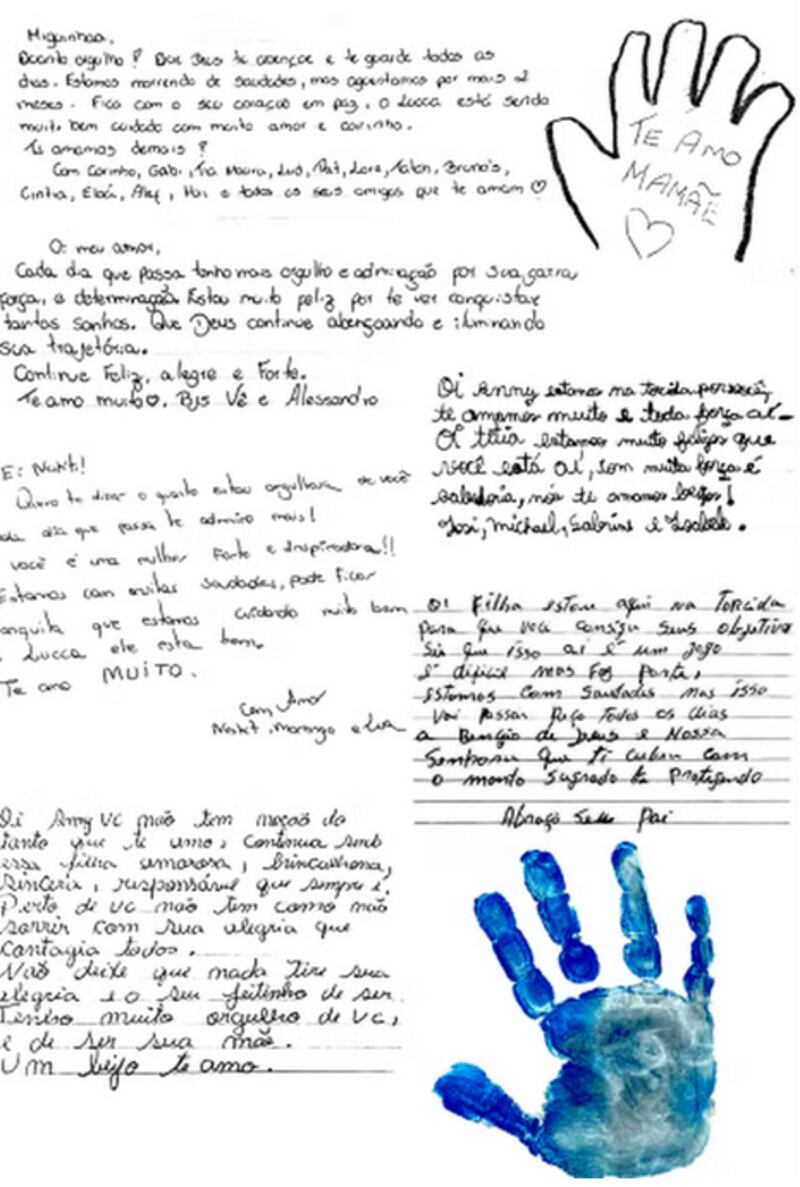 Miguinhaa,
Quanto orgulho! Que Deus te abençoe e te guarde todos os
dias. Estamos morrendo de saudades, mas aguentamos por mais 2
meses. Fica com o seu coração em paz, o Lucca está sendo
muito bem cuidado com muito amor e carinho.
Te amamos demais!
Com carinho, Gabi, Tia Maura, Luis, Pat, Lara, Bruna's,
Cintia, Eloá, Alef, e todos os seus amigos que te amam ♡
TE AMO
MAMÃE
Oi meu amor,
Cada dia que passa tenho mais orgulho e admiração por sua garra
força, e determinação. Estou muito feliz por te ver conquistar
tantos sonhos. Que Deus continue abençoando e iluminando
sua trajetória.
Continue Feliz, alegre e Forte.
Te amo muito♡. Bjs Vê e Alessandro
Oi Anny estamos na torcida por você,
te amamos muito e toda força aí-
Oi titia estamos muito felizes que
você está aí, com muita força é
sabedoria, nós te amamos beijos!
Josi, Michael, Sabrina e Isabele.
E: Naktt!
Quero te dizer o quanto estou orgulhosa de você
da dia que passa te admiro mais!
você é uma mulher Forte e Inspiradora!!
Estamos com muitas saudades, pode ficar
anquila que estamos cuidando muito bem
Lucca ele esta bem.
Te amo MUITO.
Com Amor
Naktt, Morango e Lua
Oi Filha estou aqui na Torcida
para que você consiga seus objetivo
Sei que isso aí é um jogo
é dificil mas Faz parte,
estamos com saudades mas isso
vai passar peço todos os dias
a Benção de Deus e Nossa
Senhora que Ti cubra com
o manto sagrado te protegendo
Abraço Seu Pai
Oi Anny vc não tem noção do
tanto que te amo, continua sendo
essa filha amorosa, brincalhona,
sincera, responsável que sempre é.
Perto de vc não tem como não
sorrir com sua alegria que
contagia todos.
Não deixe que nada tire sua
alegria e o seu jeitinho de ser.
Tenho muito orgulho de vc,
e de ser sua mãe.
Um beijo te amo.